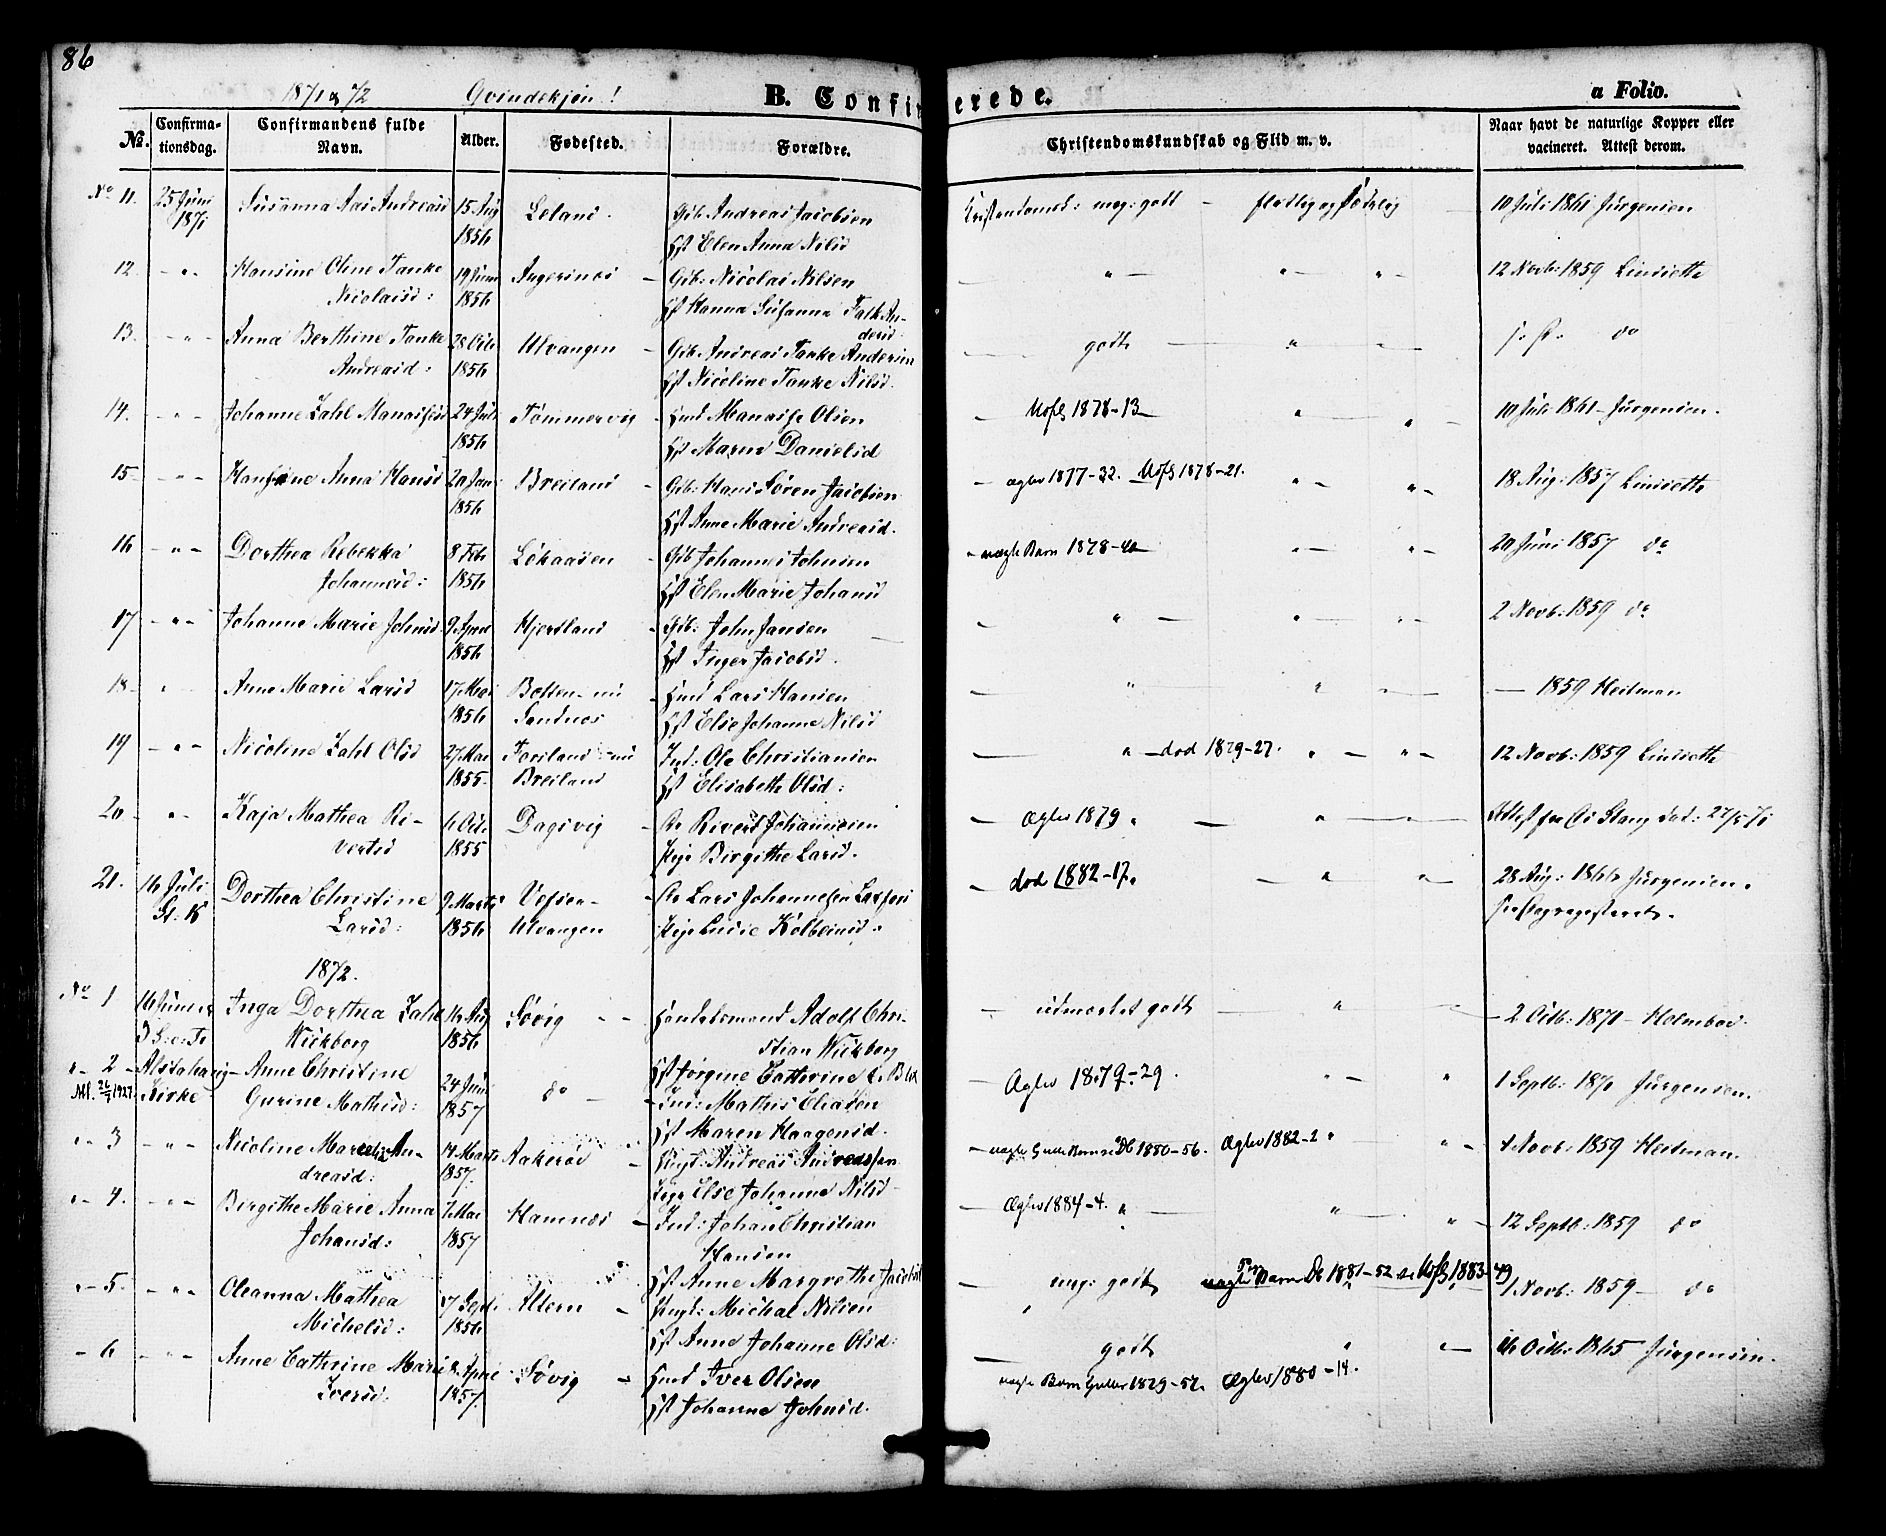 86
1871 og 72 Qvindekjøn!
B. Confirmerede.
a Folio.
No. Confirmationsdag. Confirmandens fulde Navn. Alder. Fødested. Forældre. Christendomskundskab og Flid m. v. Naar havt de naturlige Kopper eller vacineret. Attest derom.
No 11. 25 Juni 1871 Susanna Andreasd 15 Aug 1856 Leland. Gb: Andreas Jacobsen Hst Elen Anna Nilsd Kristendomsk: meg: godt - flittig og sædelig 10 Juli 1861 Jürgensen
12. - " - Hansine Oline Tanke Nicolaisd: 19 Juni 1856 Angersnes - Gb: Nicolai Nilsen Hst Hanna Susanna Falk Andersd - " - " - " - 12 Novb: 1859 Lindseth
13. - " - Anna Berthine Tanke Andreasd: 28 Octb 1856 Ulvangen - Gb. Andreas Tanke Andersen Hst Nicoline Tanke Nilsd. - godt - " - " - do
14. - " - Johanne Zahl Manassesd 24 Juli 1856 Tømmervig - Hmd Manasse Olsen Hst Maren Danielsd - Uofl 1878-13 - " - " - 10 Juli 1861 - Jürgensen.
15 - " - Hansine Anna Hansd 20 Juni 1856 Breiland - Gb: Hans Søren Jacobsen Hst Anne Marie Andreasd. - ægtev 1877-32. Uofl 1878-21. " - " - 18 Aug: 1857 Lindseth
16 - " - Dorthea Rebekka Johannesd: 8 Feb 1856 Lökaasen - Gb Johannes Johnsen Hst Elen Marie Johansd - uægte Barn 1878-40 " - " - 20 Juni 1857 do
17 - " - Johanne Marie Johnsd 9 April 1856 Hjertland - Gb: John Jansen Hst Inger Jacobsd. - " - " - " - 2 Novb: 1859 do
18 - " Anne Marie Larsd 17 Mai 1856 Botten - nu Sandnes Hmd Lars Hansen Hst Else Johanne Nilsd - " - " - - 1859 Heitman
19 - " - Nicoline Zahl Olsd 27 Mai 1855. Forsland - nu Breiland Ind: Ole Christiansen Hst Elisabeth Olsd: - " - død 1879-27. " - " - 12 Novb: 1859 Lindseth
20 - " - Kaja Mathea Rivertsd 6 Octb 1855 Dagsvig - Rivert Johannesen Pige Birgithe Larsd. - Ægtev 1879 " - " - Attest fra Stang dat: 27/5 71
21. 16 Juli Dorthea Christine Larsd: 9 Marts 1856 Vefsen - Ulvangen - Lars Johannesen Pige Lusie Kolbeinsd. - død 1882-17. - " - " - 28 Aug: 1866 Jürgensen.
1872.
No 1 16 Juni Inga Dorthea Zahl Wickborg 16 Aug 1856 Søvig - - Handelsmand Adolf Christian Wickborg Hst Jørgine Cathrine - udmærket godt - " - 2 Octb: 1870 - Holmboe.
" - 2 - Alstahaug Kirke Anne Christine Gurine Mathisd: 24 Juni 1857 do - - Ind: Mathis Eliasen Hst Maren Haagensd. - Ægtev 1879-29. " - " 1 Septb: 1870 Jürgensen.
Att. 26/7 1927.
" - 3 - " - Nicoline Andreasd: 14 Marts 1857. Aakerøe - Andreas Andreassen Pige Else Johanne Nilsd - uægte 1880-56. Ægtev 1882-2 " - " - 4 Novb: 1859 Heitman.
" - 4. - " - Birgithe Marie Anna Johansd: 7 Mai 1857 Hamnes - Ind: Johan Christian Hansen Hst Anne Margrethe Jacobsd - Ægtev 1884-4. " - " - " - 12 Septb: 1859 do
" - 5. - " - Oleanna Mathea Michelsd: 17 Sept: 1856 Altern - Michal Nilsen Hst Anne Johanne Olsd: - meg: godt uægte Barn 1881-52 Uofl 1883-49 1 Novb: 1859 - do
- 6 - " - Anne Cathrine Marie Iversd: 2 April 1857. Søvig - Hmd Iver Olsen Hst Johanne Johnsd. - godt " " - 16 Octb: 1865 Jürgensen.
uægte Barn 1879-52. Ægtev 1880-14.